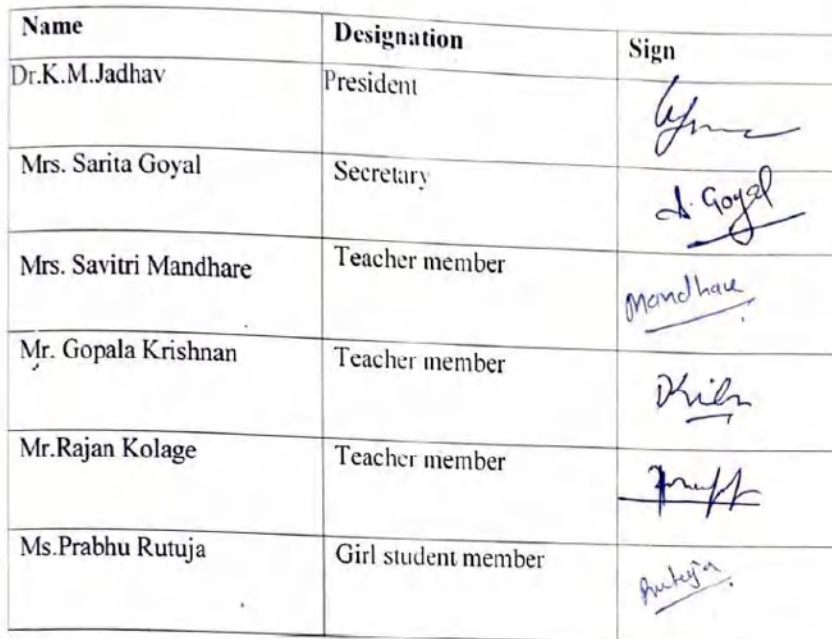 Name Designation Sign
Dr.K.M.Jadhav President
Mrs. Sarita Goyal Secretary S. Goyal
Mrs. Savitri Mandhare Teacher member Mandhare
Mr. Gopala Krishnan Teacher member
Mr.Rajan Kolage Teacher member
Ms.Prabhu Rutuja Girl student member Rutuja